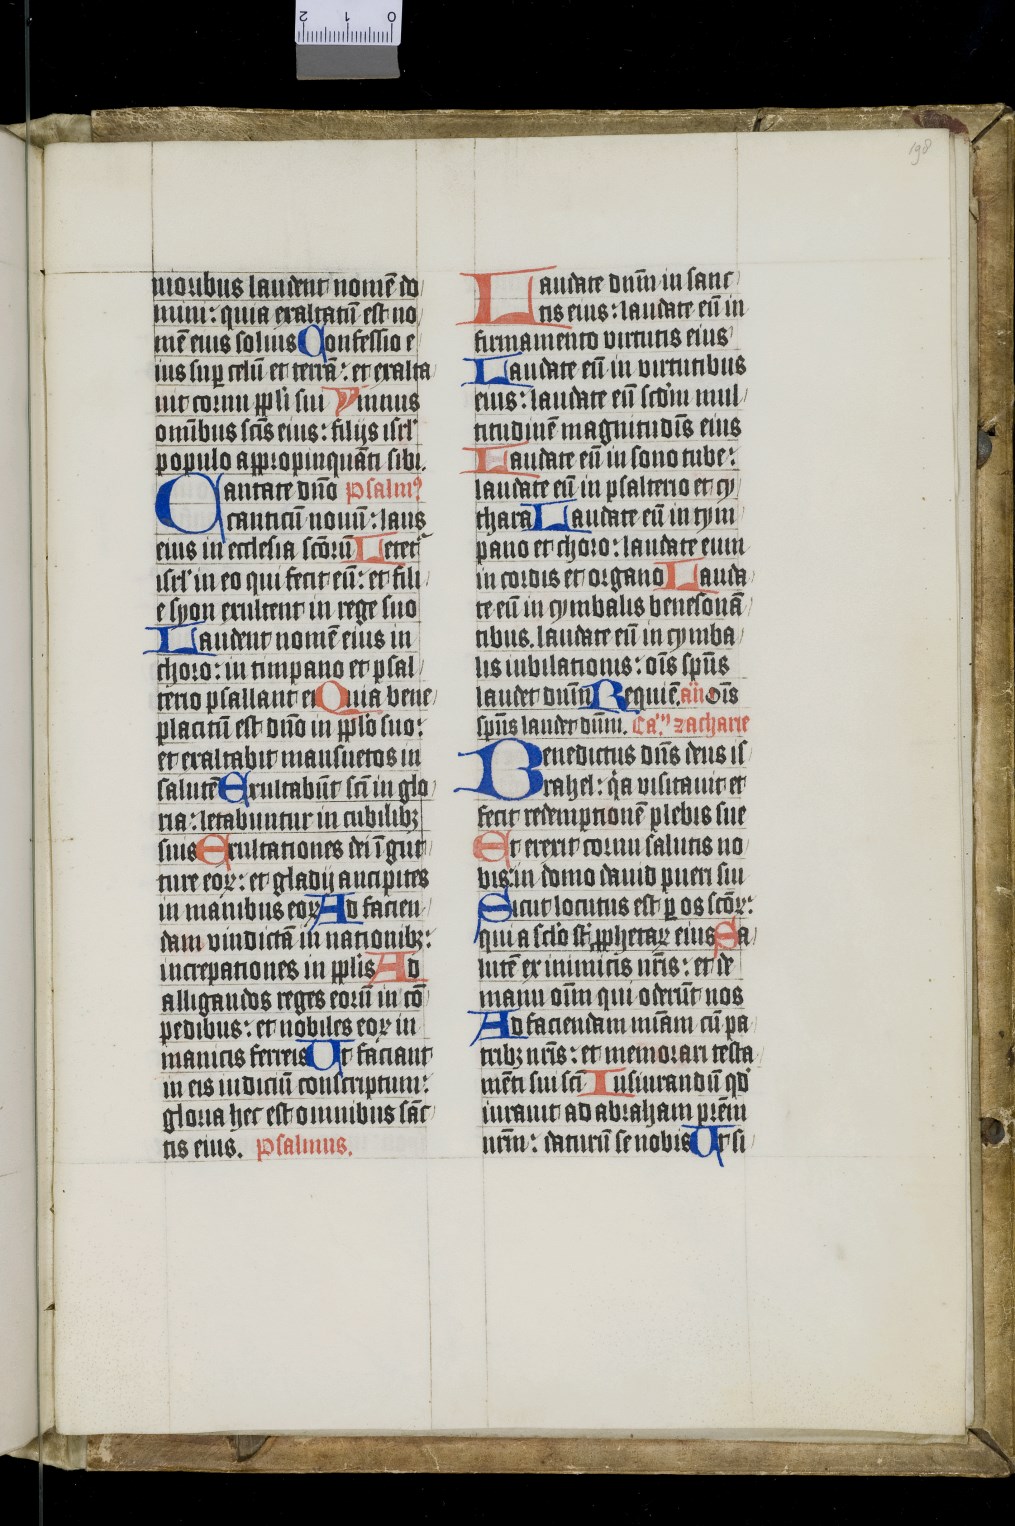 198
nioribus laudent nomē do
mini: quia exaltatū est no
mē eius solius Confessio e
ius sup celū et terrā: et exalta
uit cornu ppli sui Ymnus
omībus scīs eius: filijs isrl'
populo appropinquāti sibi.
Cantate dn̄o psalmꝰ
canticū nouū: laus
eius in ecclesia scōrū Letetᷣ
isrl' in eo qui fecit eū: et fili
e syon exultent in rege suo
Laudent nomē eius in
choro: in timpano et psal
terio psallant ei Quia bene
placitū est dn̄o in pplo suo:
et exaltabit mansuetos in
salutē Exultabūt scī in glo
ria: letabuntur in cubilibꝫ
suis Exultationes dei ī gut
ture eoꝝ: et gladij ancipites
in manibus eoꝝ Ad facien
dam vindictā in nationibꝫ:
increpationes in pplis Ad
alligandos reges eorū in cō
pedibus: et nobiles eoꝝ in
manicis ferreis Ut faciant
in eis iudiciū conscriptum:
gloria hec est omnibus sāc
tis eius. psalmus.
Laudate dn̄m in sanc
tis eius: laudate eū in
firmamento virtutis eius
Laudate eū in virtutibus
eius: laudate eū scd̄m mul
titudinē magnitudīs eius
Laudate eū in sono tube:
laudate eū in psalterio et cy
thara Laudate eū in tym
pano et choro: laudate eum
in cordis et organo Lauda
te eū in cymbalis benesonā
tibus. laudate eū in cymba
lis iubilationis: oīs sp̄us
laudet dn̄m Requiē. an̄ Oīs
sp̄us laudet dn̄m. Ca.ᵐ zacharie
Benedictus dn̄s deus is
rahel: q̄a visitauit et
fecit redemptionē plebis sue
Et erexit cornu salutis no
bis: in domo dauid pueri sui
Sicut locutus est ꝑ os scōꝝ:
qui a sclo st̄ ꝓphetaꝝ eius Sa
lutē ex inimicis nr̄is: et de
manu oīm qui oderūt nos
Ad faciendam mīam cū pa
tribꝫ nr̄is: et memorari testa
mēti sui scī Iusiurandū qd'
iurauit ad abraham prēm
nr̄m: daturū se nobis Ut si